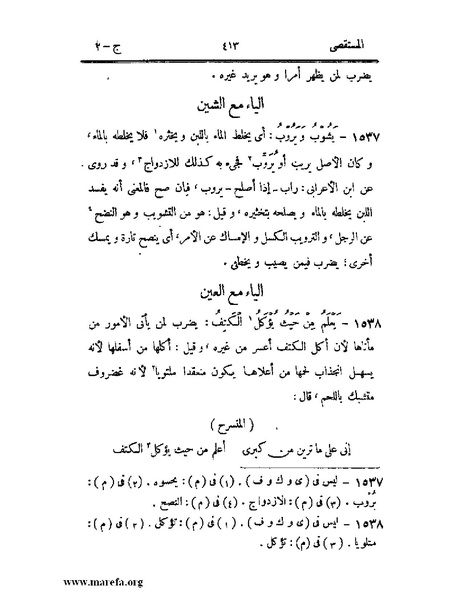 المستقصى ٤١٣ ج-٢
يضرب لمن يظهر أمرا و هو يريد غيره .
الياء مع الشين
١٥٣٧ - يَشُوْبُ وَ يَرُوْبُ : أى يخلط الماء باللبن و يخثره ١ فلا يخلطه بالماء ،
و كان الأصل يريب أو يُرَوِّب ٢ فجىء به كذلك للازدواج ٣ ، و قد روى
عن ابن الأعرابى : راب - إذا أصلح - يروب ، فإن صح فالمعنى أنه يفسد
اللبن يخلطه بالماء و يصلحه بتخثيره ، و قيل : هو من التشويب و هو النضح ٤
عن الرجل ، و الترويب الكسل و الإمساك عن الأمر ، أى ينضح تارة و يمسك
أخرى ؛ يضرب فيمن يصيب و يخطئ .
الياء مع العين
١٥٣٨ - يَعْلَمُ مِنْ حَيْثُ يُؤْكَلُ ١ الْكَتِفُ : يضرب لمن يأتى الأمور من
مأتاها لأن أكل الكتف أعسر من غيره ، و قيل : أكلها من أسفلها لأنه
يسهل انجذاب لحمها من أعلاها يكون منعقدا ملتويا ٢ لأنه غضروف
متشبك باللحم ، قال :
( المنسرح )
إنى على ما ترين من كبرى أعلم من حيث يؤكل ٣ الكتف
١٥٣٧ - ليس فى ( ى و ك و ف ) . (١) فى ( م ) : يحسوه . (٢) فى ( م ) :
يُرُوْب . (٣) فى ( م ) : الازدواج . (٤) فى ( م ) : النصح .
١٥٣٨ - ليس فى ( ى و ك و ف ) . (١) فى ( م ) : تؤكل . (٢) فى ( م ) :
متلويا . (٣) فى ( م ) : تؤكل .
www.marefa.org